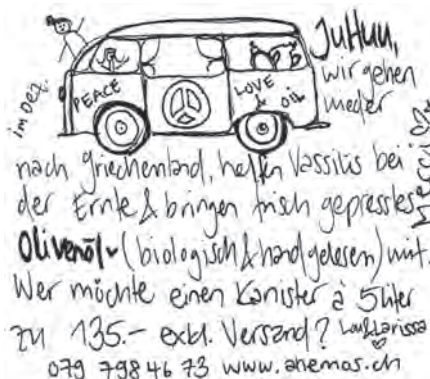 JuHuu,
wir gehen
wieder
im Dez.
PEACE
LOVE
& OIL
nach Griechenland, helfen Vassilis bei
der Ernte & bringen frisch gepresstes
Olivenöl (biologisch & handgelesen) mit.
Wer möchte einen Kanister à 5 Liter
zu 135.- exkl. Versand?
079 798 46 73 www.anemos.ch
Merci